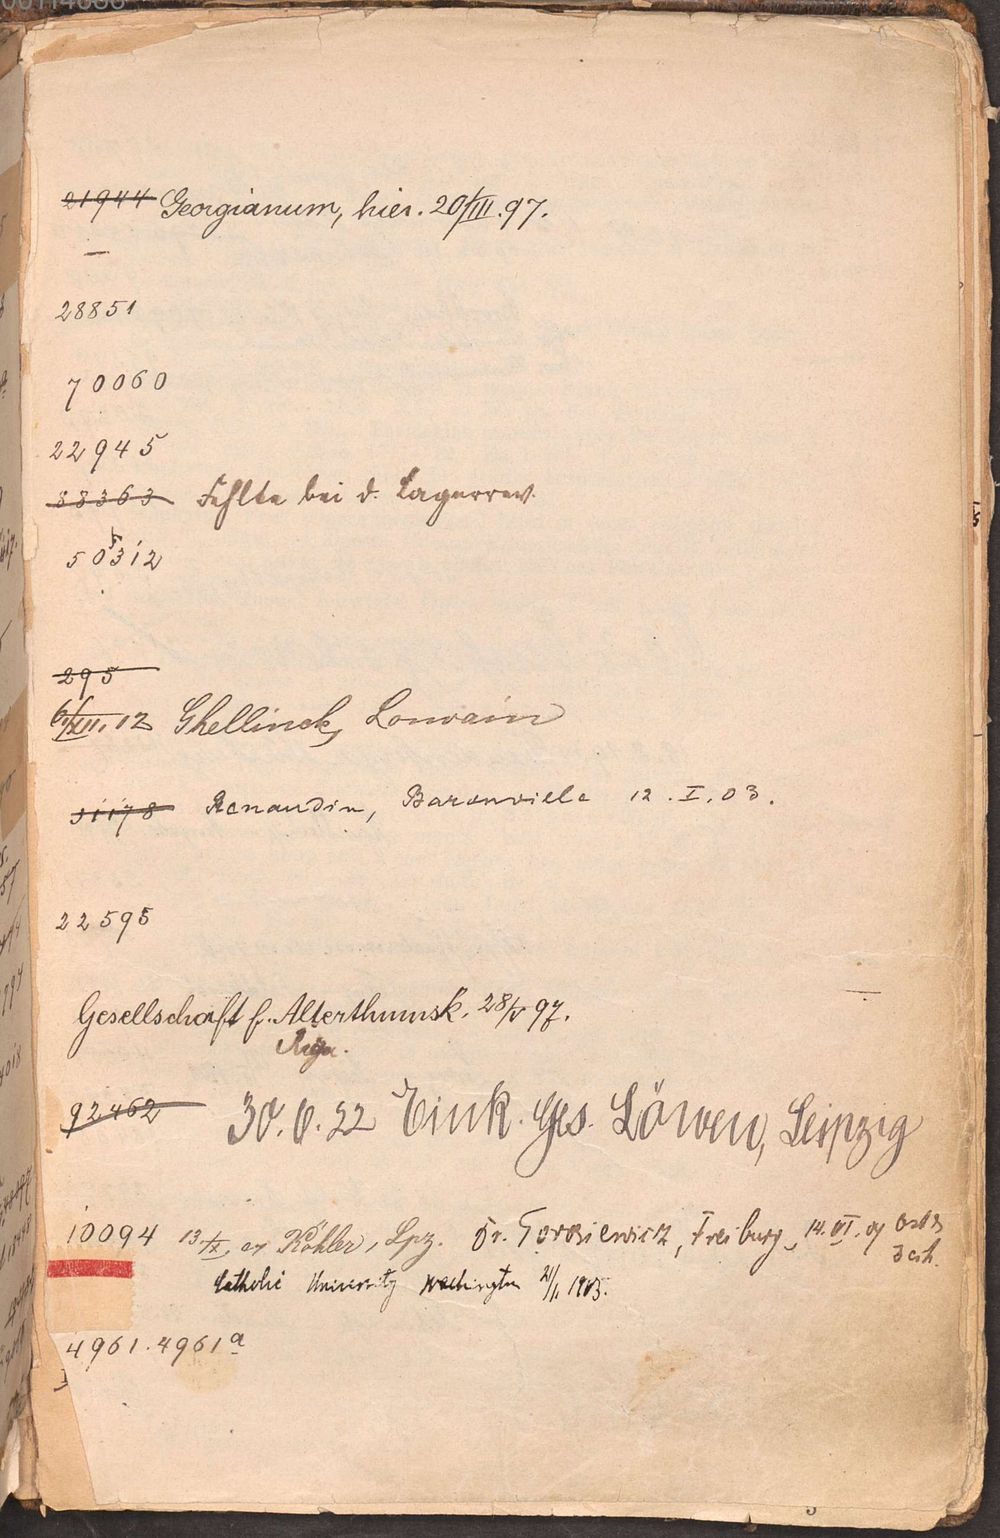 21944 Georgianum, hier. 20/III.97.
28851
70060
22945
38363 Fehlte bei d. Lagerrev.
50312
295
6/XII.12 Ghellinck, Louvain
51178 Renaudin, Baronville 12.I.03.
22595
Gesellschaft f. Alterthumsk. 28/V 97.
Riga.
92462 30.6.22 Eink. Ges. Löwen, Leipzig
10094 Köhler, Lpz. Dr. Freiburg, 14.VI.
Catholic University Washington
4961.4961a